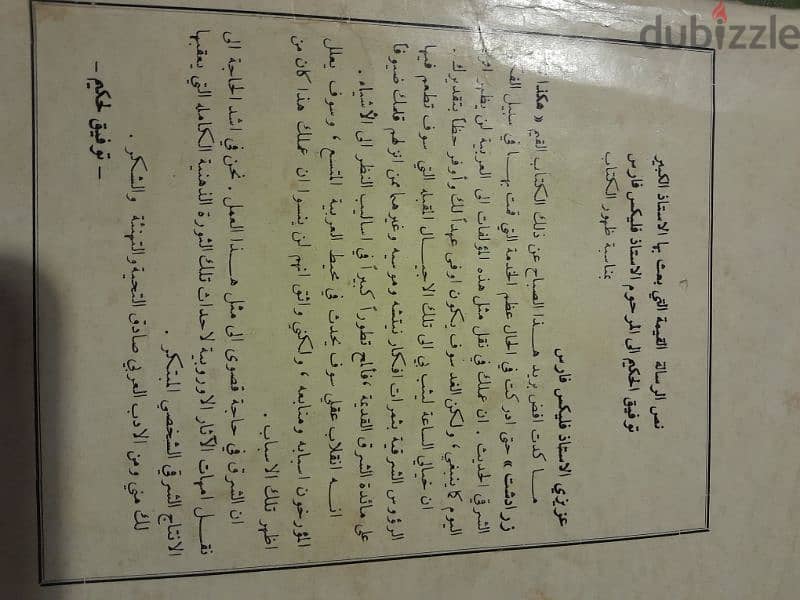 dubizzle
نص الرسالة القيمة التي بعث بها الاستاذ الكبير
توفيق الحكيم الى المرحوم الاستاذ فليكس فارس
بمناسبة ظهور الكتاب
عزيزي الاستاذ فليكس فارس
ما كدت افض بريد هذا الصباح عن ذلك الكتاب القيم « هكذا
زرادشت » حتى ادركت في الحال عظم الخدمة التي قمت بها في سبيل
الشرقي الحديث . ان عملك في نقل مثل هذه المؤلفات الى العربية لن يظهر
اليوم كما ينبغي ، ولكن الغد سوف يكون اوفى عهداً لك وأوفر حظاً بتقديرك .
ان خيالي الساعة ليثب بي الى تلك الاجيال المقبلة التي سوف تطعم فيها
الرؤوس الشرقية بثمرات افكار نيتشه وموسيه وغيرهما ممن انزلهم قلمك ضيوفاً
على مائدة الشرق القديمة ، فألمح تطوراً كبيراً في اساليب النظر الى الأشياء .
انه انقلاب عقلي سوف يحدث في محيط العربية المتسع ، وسوف يعلل
المؤرخون اسبابه ومنابعه ، ولكني واثق انهم لن ينسوا ان عملك هذا كان من
اظهر تلك الاسباب .
ان الشرق في حاجة قصوى الى مثل هذا العمل . نحن في اشد الحاجة الى
نقل امهات الآثار الاوروبية لاحداث تلك الثورة الذهنية الكاملة التي يعقبها
الانتاج الشرقي الشخصي المبتكر .
لك مني ومن الادب العربي صادق التحية والتهنئة والشكر .
- توفيق الحكيم -